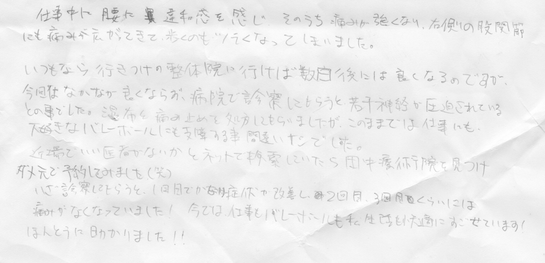 仕事中に腰に違和感を感じ そのうち痛みが強くなり、右側の股関節
にも痛みが広がってきて歩くのもツラくなってしまいました。
いつもなら行きつけの整体院に行けば数日後には良くなるのですが、
今回はなかなか良くならず、病院で診察してもらうと若干神経が圧迫されている
との事でした。湿布と痛み止めを処方してもらいましたが、このままでは仕事にも、
大好きなバレーボールにも支障する事間違いナシでした。
近場でいい医者がないかとネットで検索していたら田中療術院を見つけ
ダメ元で予約してみました(笑)
いざ診察してもらうと、1回目でかなり症状が改善し、2回目、3回目くらいには
痛みがなくなっていました! 今では仕事もバレーボールも私生活も快適にすごせています!
ほんとうに助かりました!!